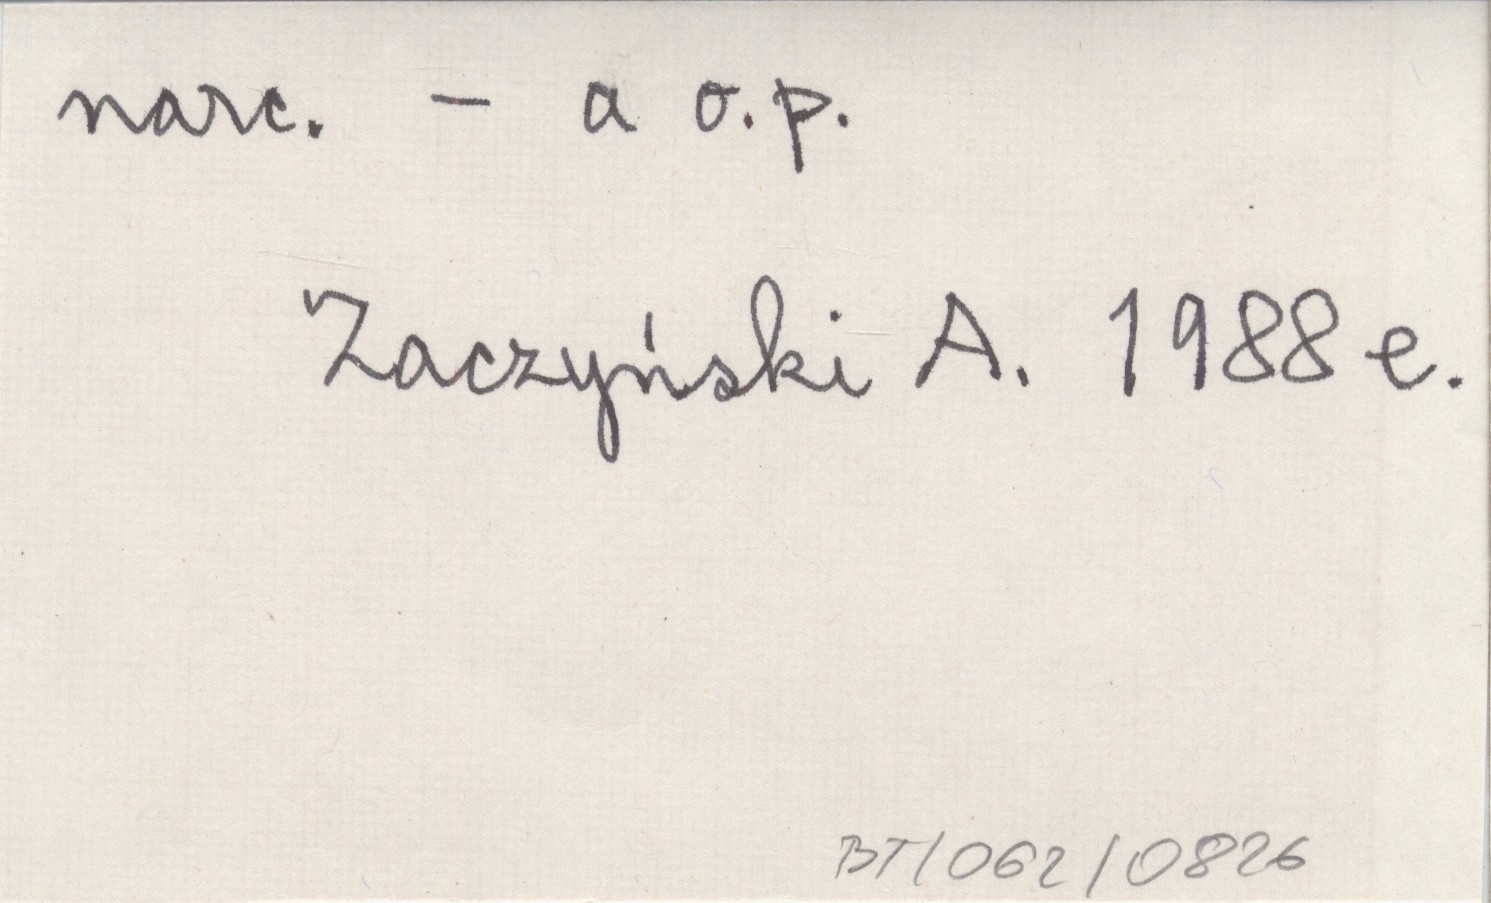 narc. - a o.p.
Zaczyński A. 1988 e.
BT/062/0826